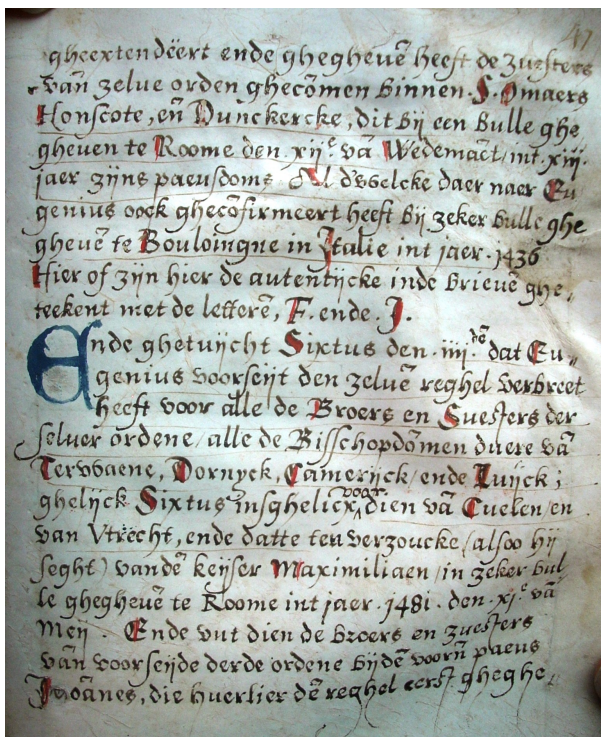 47
gheextendëert ende ghegheuē heeft de zuesters
van zelue orden ghecōmen binnen . S. Omaers
Honscote, en̄ Dunckercke, dit bij een bulle ghe
gheuen te Roome den . xijᵉ. vā Wedemāet, int. xiij.
jaer zijns paeusdoms. Al d'welcke daer naer Eu
genius oock ghecōfirmeert heeft bij zeker bulle ghe
gheuē te Bouloingne in Italie int jaer . 1436
Hier of zijn hier de autentijcke inde brieuē ghe„
teekent met de letterē, F. ende . J.
Ende ghetuijcht Sixtus den . iiij.dē dat Eu„
genius voorseijt den zeluē reghel verbreet
heeft voor alle de Broers en Suesters der
seluer ordene / alle de Bisschopdōmen duere vā
Terwaene, Dornyck, Camerijck / ende Luijck ;
ghelijck Sixtus insghelicx voor dien vā Cuelen / en
van Vtrecht, ende datte ten verzoucke (alsoo hij
seght) vandē keijser Maximiliaen / in zeker bul„
le ghegheuē te Roome int jaer . 1481 . den . xjᵉ. vā
Meij . Ende vut dien de broers en zuesters
van voorseijde derde ordene bijdē voorn̄ paeus
Joānes, die huerlier dē reghel eerst gheghe„